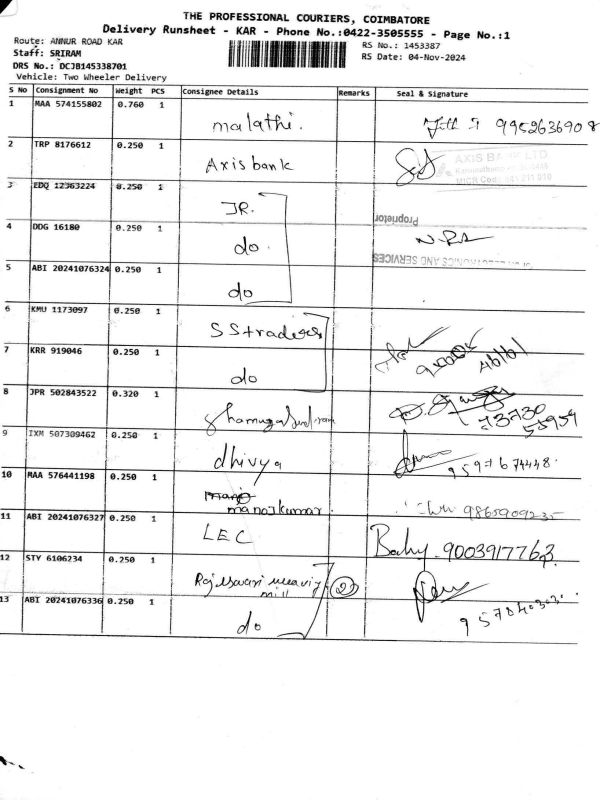 THE PROFESSIONAL COURIERS, COIMBATORE
Delivery Runsheet - KAR - Phone No.:0422-3505555 - Page No.:1
Route: ANNUR ROAD KAR
Staff: SRIRAM
DRS No.: DCJB145338701
Vehicle: Two Wheeler Delivery
RS No.: 1453387
RS Date: 04-Nov-2024
S No Consignment No Weight PCS Consignee Details Remarks Seal & Signature
1 MAA 574155802 0.760 1 malathi. 9952636908
2 TRP 8176612 0.250 1 Axis bank AXIS BANK LTD
3 EDQ 12363224 0.250 1 JR. Proprietor
4 DDG 16180 0.250 1 do.
5 ABI 20241076324 0.250 1 do AND SERVICES
6 KMU 1173097 0.250 1 SS traders
7 KRR 919046 0.250 1 do
8 JPR 502843522 0.320 1 73730
55959
9 IXM 507309462 0.250 1 dhivya 9597674448.
10 MAA 576441198 0.250 1 manojkumar
11 ABI 20241076327 0.250 1 LEC Baby. 9003917763.
12 STY 6106234 0.250 1 mill 2
13 ABI 20241076336 0.250 1 do